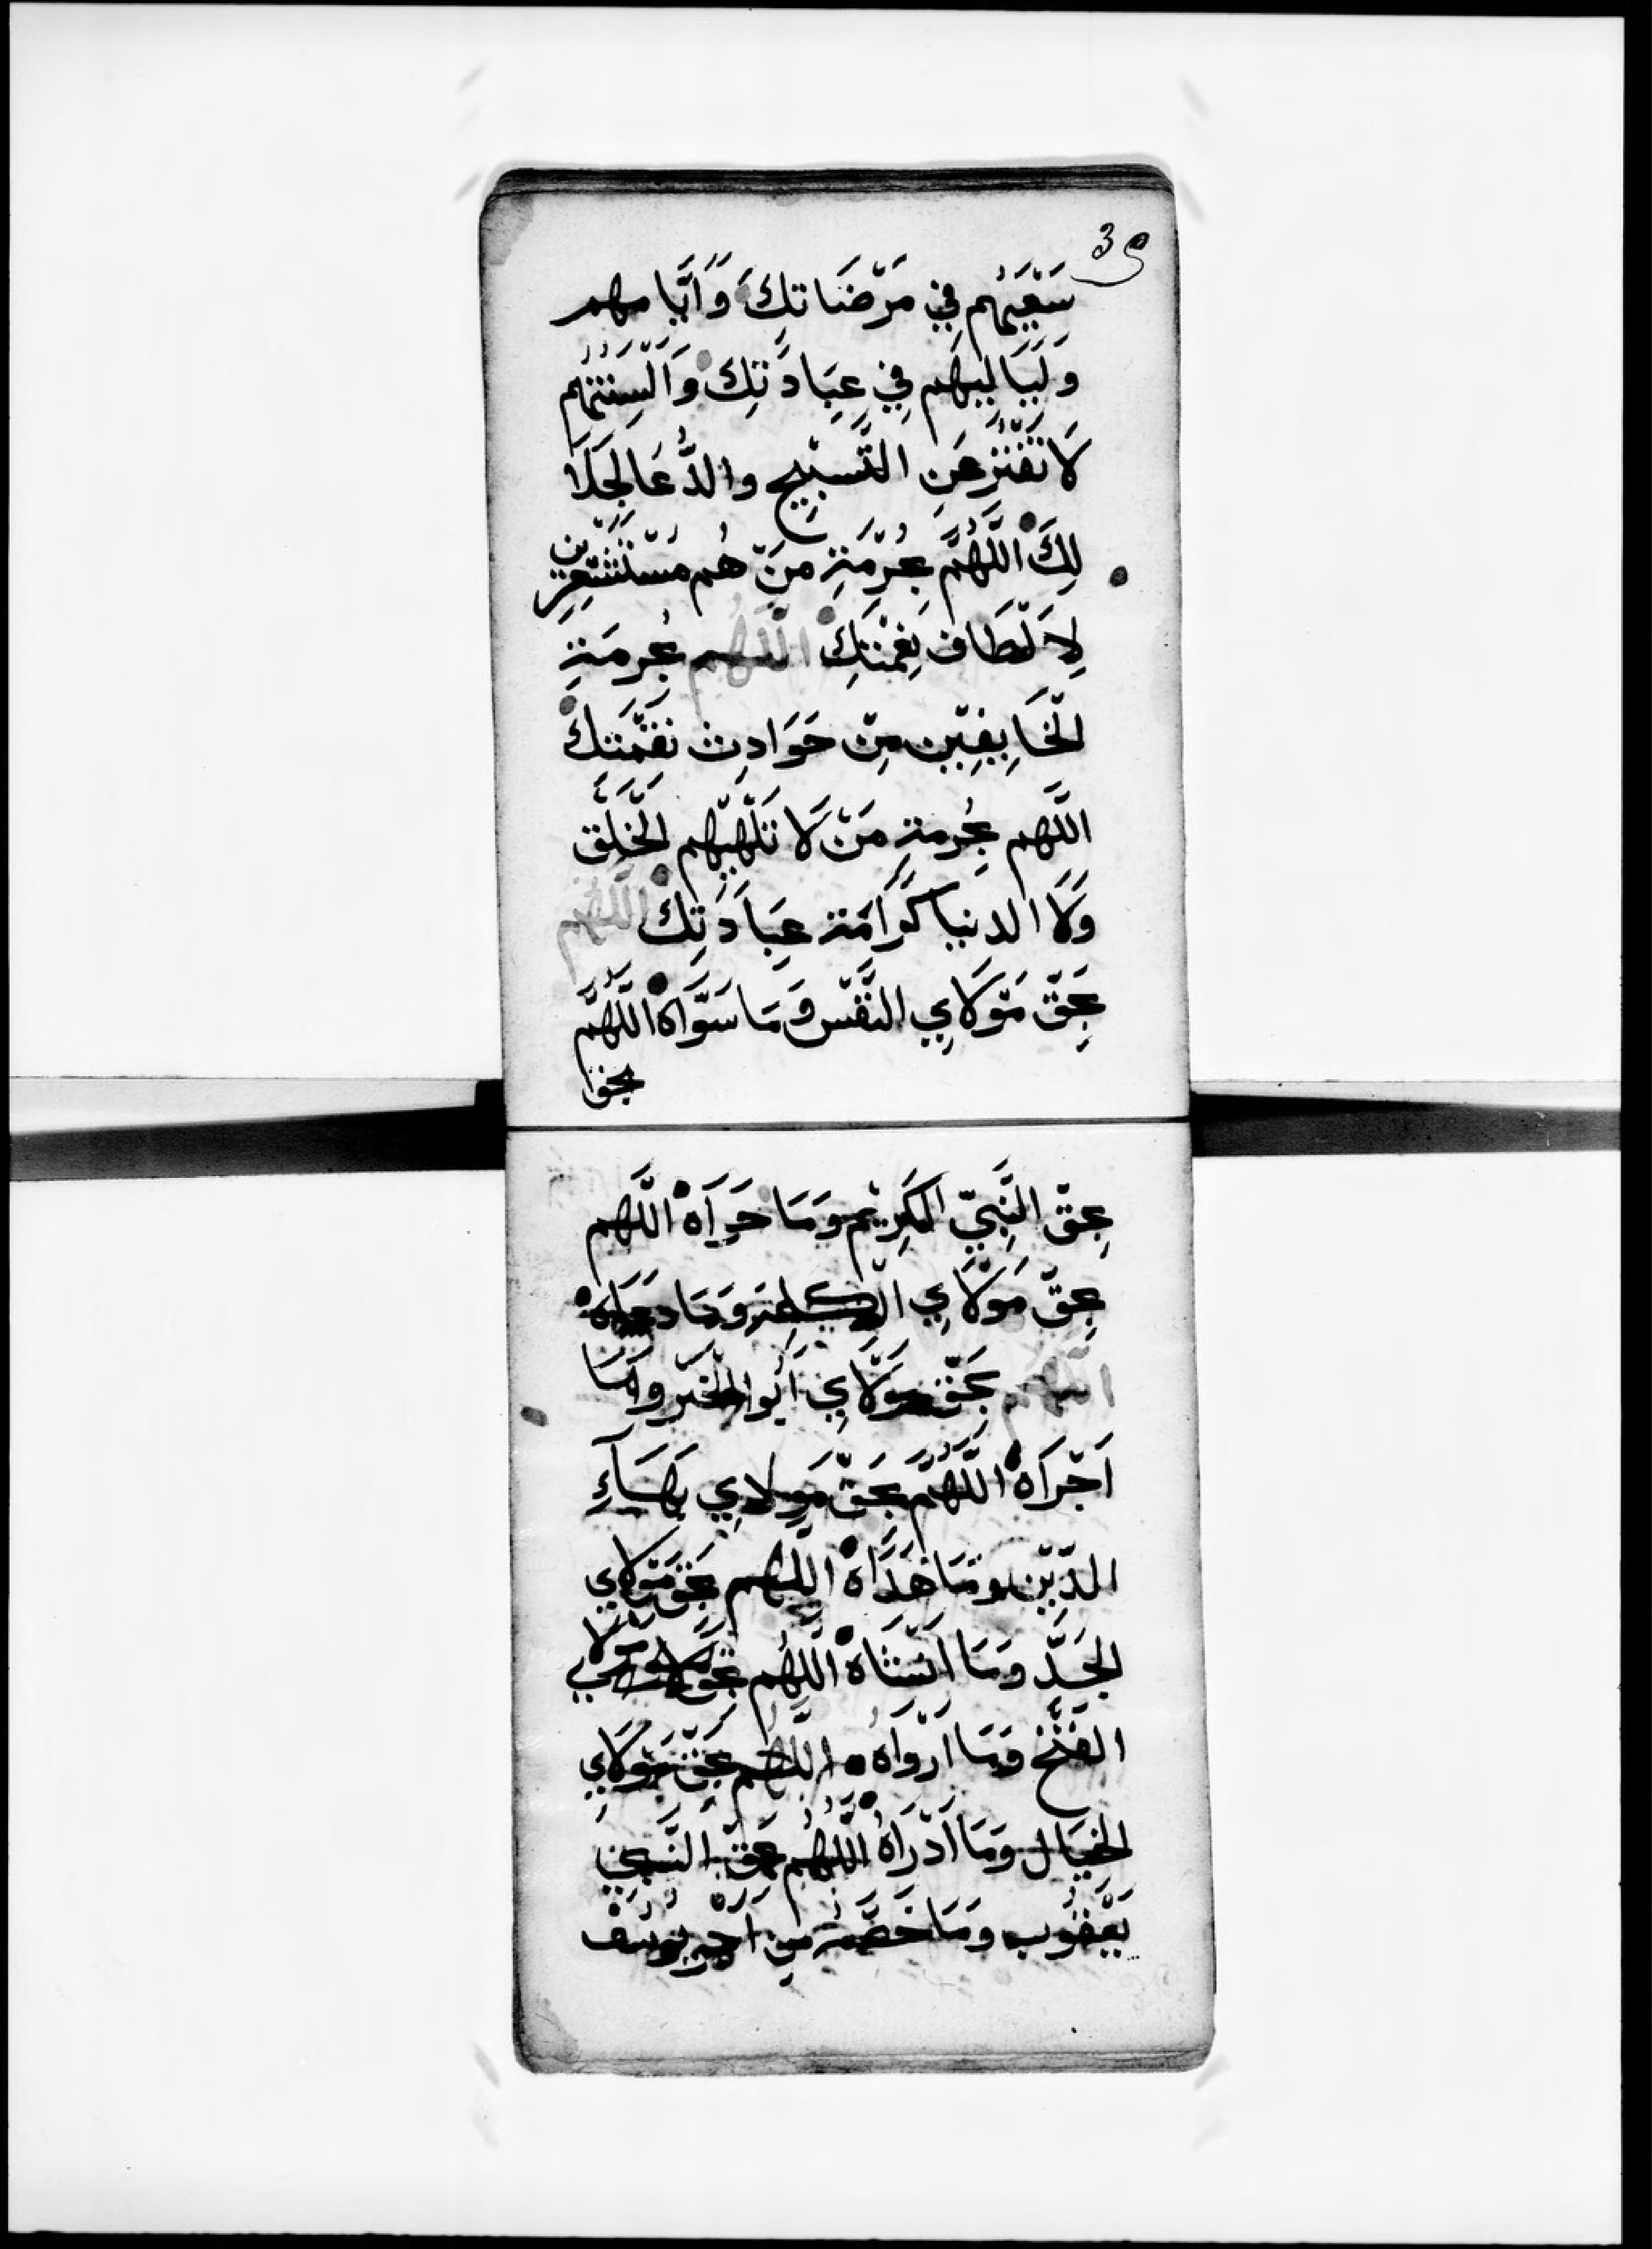 39
سَعْيَهُم فِي مَرْضَاتِكَ وَاَيَّامهم
وَلَيَالِيهُم فِي عِبَادَتِكَ وَاَلْسِنَتُهُم
لَا تَفْتُرْ عَنِ التَّسبِيح والدُّعَا لِجَلَا
لِكَ اللَّهُمَّ بِحُرْمَةِ مَنْ هُم مُسْتَشْعِرِين
لِاَلْطَاف نِعْمَتِكَ اللَّهُم بحُرمَةِ
الْخَايِفِيْن مِنْ حَوَادِث نقْمَتكَ
اللَّهم بِحُرمةِ مَنْ لَا تلْهِيْهم الخَلْق
وَلَا الدنيا كَرَامَة عِبَادَتِكَ اللَّهُم
بِحَقّ مَوْلَايِ النَّفْس وَمَا سَوَّاهْ اللَّهُمَّ
بحق ا
بِحقّ النَّبِيّ الكَرِيْم وَمَا حَوَاهْ اللَّهم
بِحقّ مَوْلَايِ الكلِمَة وَمَا دعَاهْ
اللهم بَحَقّ مَوْلَايِ اَبُو الخَير وَمَا
اَجْرَاهْ اللَّهُمَّ بحَقّ مَولايِ بَهَاءِ
الدِّيْن وَمَا هَدَاهْ اللهم بحَق مَوْلَايِ
الجَدّ وَمَا اَسْنَاهْ اللَّهُم بحَق مَولَاي
الفَتْحْ وَمَا اَرْوَاهْ اللَّهُم بحَقّ مَوْلَايِ
الخيَال وَمَا اَدْرَاهْ اللَّهُم بحَقّ النَّبِي
يَعْقُوب وَمَا خَصَّهُ مِن اَجْرِ يُوسُفْ